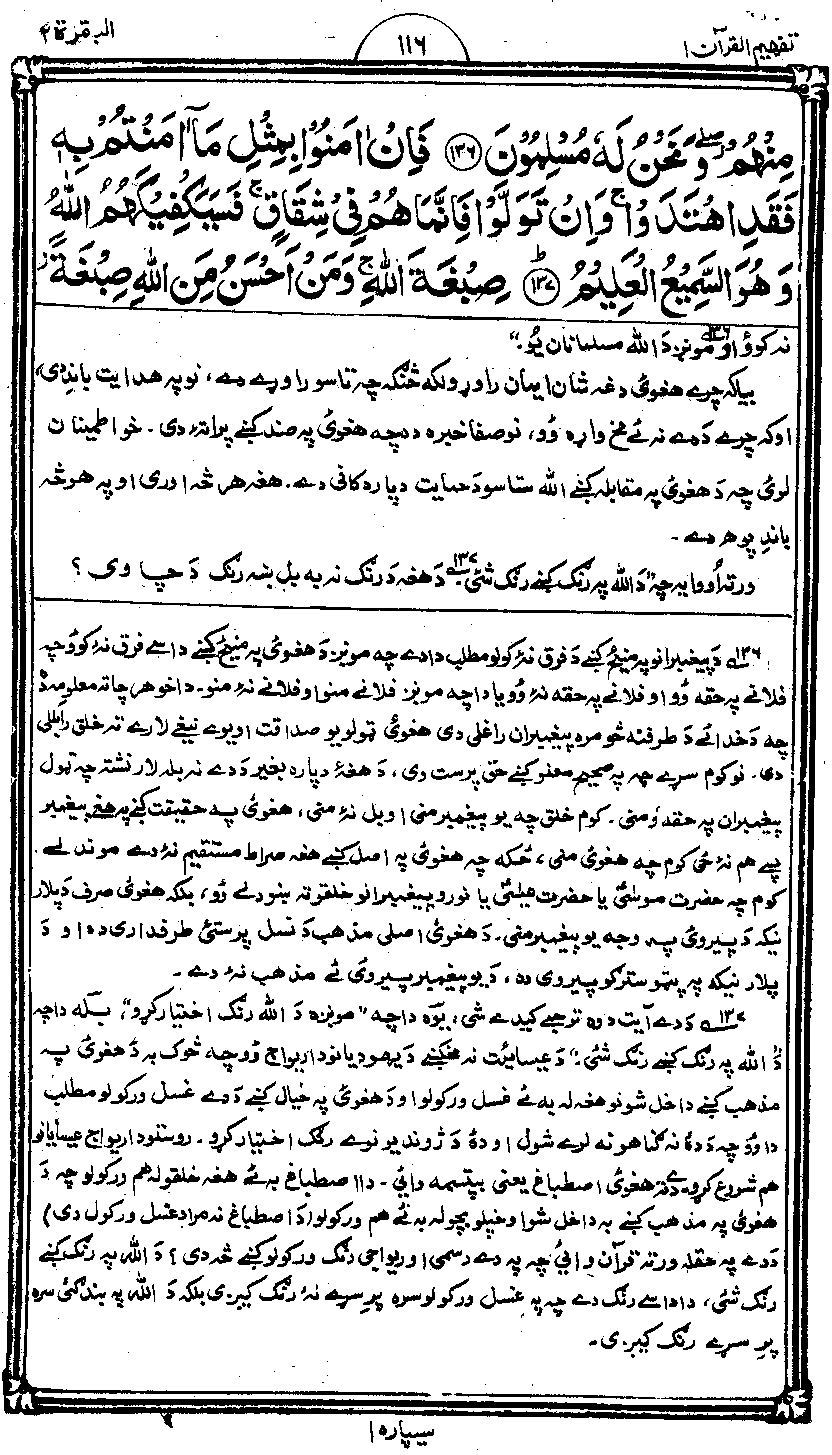 تفهيم القرآن ۱
۱۱۶
البقرة ۲
مِنْهُمْ وَنَحْنُ لَهٗ مُسْلِمُوْنَ ۝۱۳۶ فَاِنْ اٰمَنُوْا بِمِثْلِ مَآ اٰمَنْتُمْ بِهٖ
فَقَدِ اهْتَدَوْا ۚ وَاِنْ تَوَلَّوْا فَاِنَّمَا هُمْ فِيْ شِقَاقٍ ۚ فَسَيَكْفِيْكَهُمُ اللّٰهُ ۚ
وَهُوَ السَّمِيْعُ الْعَلِيْمُ ۝۱۳۷ صِبْغَةَ اللّٰهِ ۚ وَمَنْ اَحْسَنُ مِنَ اللّٰهِ صِبْغَةً ۡ
نه کوؤ او مونږ دَ الله مسلمانان يُو.“
بيا که چرے هغوئ دغه شان ايمان راوړو لکه څنګه چه تاسو راوړے دے، نو په هدايت باندے دی،
او که چرے دَ دے نه ئے مخ واړه وُو، نو صفا خبره ده چه هغوئ په ضد کښے پراتۀ دی۔ خو اطمينان
لرئ چه دَ هغوئ په مقابله کښے الله ستاسو دَ حمايت دپاره کافی دے. هغه هر څه اوری او په هر څه
باندِ پوهه دے۔
ورته اُووايه چه ”دَ الله په رنګ کښے رنګ شئ ۱۳۷ دَ هغه دَ رنګ نه به بل ښه رنګ دَ چا وی؟
۱۳۶ دَ پيغمبرانو په مينځ کښے دَ فرق نۀ کولو مطلب دا دے چه مونږ دَ هغوئ په مينځ کښے داسے فرق نۀ کوؤ چه
فلانے په حقه وُو او فلانے په حقه نۀ وُو يا دا چه مونږ فلانے منو او فلانے نۀ منو۔ دا خو هر چا ته معلومه ده
چه دَ خدائے دَ طرفنه څومره پيغمبران راغلی دی هغوئ ټولو يو صداقت او يوے نيغے لارے ته خلق رابللی
دی۔ نو کوم سړے چه په صحيح معنو کښے حق پرست دی، دَ هغۀ دپاره بغير دَ دے نه بله لار نشته چه ټول
پيغمبران په حقه ومنی۔ کوم خلق چه يو پيغمبر منی او بل نۀ منی، هغوئ په حقيقت کښے په هغه پيغمبر
پسے هم نۀ ځی کوم چه هغوئ منی، ځکه چه هغوئ په اصل کښے هغه صراط مستقيم نۀ دے موندلے۔
کوم چه حضرت موسیٰؑ يا حضرت عيسیٰؑ يا نورو پيغمبرانو خلقو ته ښودلے وُو، بلکه هغوئ صرف دَ پلار
نيکه دَ پيروئ په وجه يو پيغمبر منی۔ دَ هغوئ اصلی مذهب دَ نسل پرستئ طرفداری ده او دَ
پلار نيکه په پټو سترګو پيروی ده، دَ يو پيغمبر پيروی ئے مذهب نۀ دے۔
۱۳۷ دَ دے آيت دوه ترجمے کيدے شی، يوه دا چه ”مونږه دَ الله رنګ اختيار کړو“، بله دا چه
”دَ الله په رنګ کښے رنګ شئ“. دَ عيسائيت نه مخکښے دَ يهوديانو دا رواج وُو چه څوک به دَ هغوئ په
مذهب کښے داخل شو نو هغه له به ئے غسل ورکولو او دَ هغوئ په خيال کښے دَ دے غسل ورکولو مطلب
دا وُو چه دَ دۀ نه ګناهونه لرے شول او دۀ دَ ژوند يو نوے رنګ اختيار کړو۔ روستو دا رواج عيسايانو
هم شروع کړو، دے ته هغوئ اصطباغ يعنی بپتسمه وائی۔ دا اصطباغ به ئے هغه خلقو له هم ورکولو چه دَ
هغوئ په مذهب کښے به داخل شو او خپلو بچو له به ئے هم ورکولو (دَ اصطباغ نه مراد غسل ورکول دی)
دَ دے په حقله ورته قرآن وائی چه په دے رسمی او رواجی رنګ ورکولو کښے څه دی؟ دَ الله په رنګ کښے
رنګ شئ، دا داسے رنګ دے چه په غسل ورکولو سره پرِ سړے نۀ رنګ کيږی بلکه دَ الله په بندګئ سره
پرِ سړے رنګ کيږی۔
سيپاره ۱